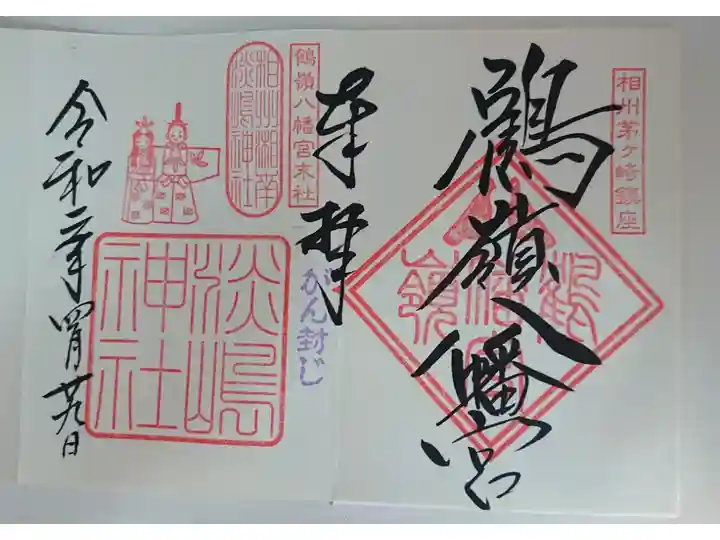 相州茅ヶ崎鎮座
鶴嶺八幡宮
鶴嶺
奉拝
鶴嶺八幡宮末社
がん封じ
相州湘南
淡嶋神社
淡嶋
神社
令和二年四月廿九日